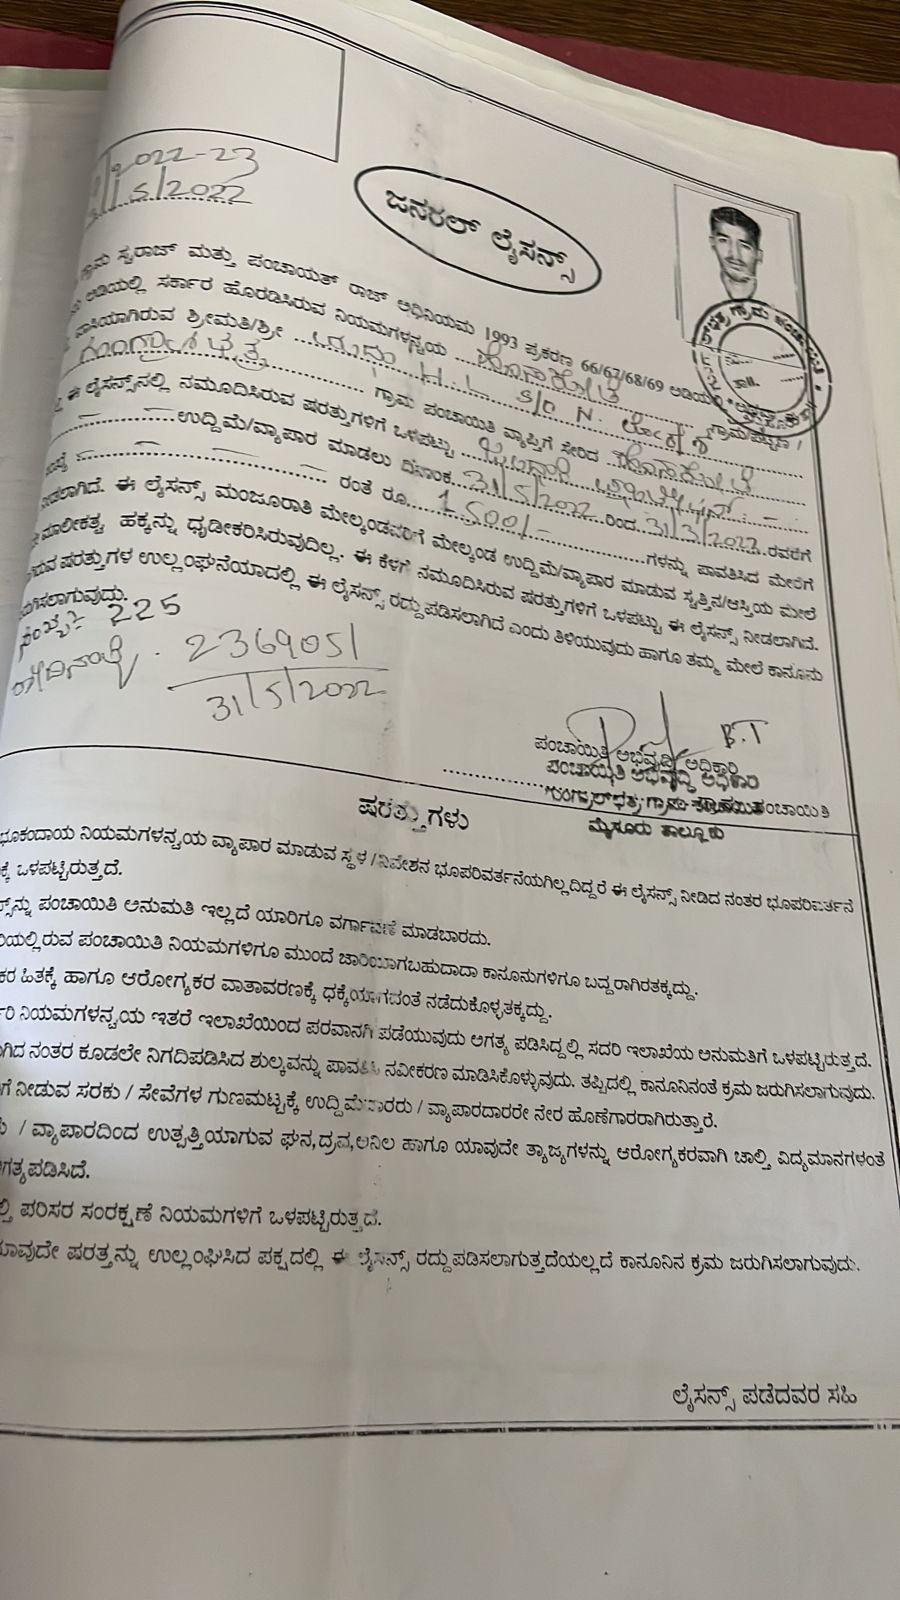 2022-23
/5/2022
ಜನರಲ್ ಲೈಸನ್ಸ್
ಗ್ರಾಮ ಸ್ವರಾಜ್ ಮತ್ತು ಪಂಚಾಯತ್ ರಾಜ್ ಅಧಿನಿಯಮ 1993 ಪ್ರಕರಣ 66/67/68/69 ಅಡಿಯಲ್ಲಿ
ಅಡಿಯಲ್ಲಿ ಸರ್ಕಾರ ಹೊರಡಿಸಿರುವ ನಿಯಮಗಳನ್ವಯ ಗ್ರಾಮ/ಪಟ್ಟಣ/
ವಾಸಿಯಾಗಿರುವ ಶ್ರೀಮತಿ/ಶ್ರೀ H.L. S/o N. ಲೋಕೇಶ್
ಗ್ರಾಮ ಪಂಚಾಯಿತಿ ವ್ಯಾಪ್ತಿಗೆ ಸೇರಿದ
ಈ ಲೈಸನ್ಸ್‌ನಲ್ಲಿ ನಮೂದಿಸಿರುವ ಷರತ್ತುಗಳಿಗೆ ಒಳಪಟ್ಟು
ಉದ್ದಿಮೆ/ವ್ಯಾಪಾರ ಮಾಡಲು ದಿನಾಂಕ 31/5/2022 ರಿಂದ 31/3/2022 ರವರೆಗೆ
ರಂತೆ ರೂ. 1500/- ಗಳನ್ನು ಪಾವತಿಸಿದ ಮೇರೆಗೆ
ನೀಡಲಾಗಿದೆ. ಈ ಲೈಸನ್ಸ್ ಮಂಜೂರಾತಿ ಮೇಲ್ಕಂಡವರಿಗೆ ಮೇಲ್ಕಂಡ ಉದ್ದಿಮೆ/ವ್ಯಾಪಾರ ಮಾಡುವ ಸ್ವತ್ತಿನ/ಆಸ್ತಿಯ ಮೇಲೆ
ಮಾಲೀಕತ್ವ ಹಕ್ಕನ್ನು ಧೃಡೀಕರಿಸಿರುವುದಿಲ್ಲ. ಈ ಕೆಳಗೆ ನಮೂದಿಸಿರುವ ಷರತ್ತುಗಳಿಗೆ ಒಳಪಟ್ಟು ಈ ಲೈಸನ್ಸ್ ನೀಡಲಾಗಿದೆ.
ಷರತ್ತುಗಳ ಉಲ್ಲಂಘನೆಯಾದಲ್ಲಿ ಈ ಲೈಸನ್ಸ್ ರದ್ದುಪಡಿಸಲಾಗಿದೆ ಎಂದು ತಿಳಿಯುವುದು ಹಾಗೂ ತಮ್ಮ ಮೇಲೆ ಕಾನೂನು
225
2369051
31/5/2022
B.T
ಪಂಚಾಯಿತಿ ಅಭಿವೃದ್ಧಿ ಅಧಿಕಾರಿ
ಪಂಚಾಯಿತಿ ಅಭಿವೃದ್ಧಿ ಅಧಿಕಾರಿ
ಮೈಸೂರು ತಾಲ್ಲೂಕು
ಷರತ್ತುಗಳು
ಭೂಕಂದಾಯ ನಿಯಮಗಳನ್ವಯ ವ್ಯಾಪಾರ ಮಾಡುವ ಸ್ಥಳ/ನಿವೇಶನ ಭೂಪರಿವರ್ತನೆಯಗಿಲ್ಲದಿದ್ದರೆ ಈ ಲೈಸನ್ಸ್ ನೀಡಿದ ನಂತರ ಭೂಪರಿವರ್ತನೆ
ಒಳಪಟ್ಟಿರುತ್ತದೆ.
ಪಂಚಾಯಿತಿ ಅನುಮತಿ ಇಲ್ಲದೆ ಯಾರಿಗೂ ವರ್ಗಾವಣೆ ಮಾಡಬಾರದು.
ಪಂಚಾಯಿತಿ ನಿಯಮಗಳಿಗೂ ಮುಂದೆ ಜಾರಿಯಾಗಬಹುದಾದಾ ಕಾನೂನುಗಳಿಗೂ ಬದ್ದರಾಗಿರತಕ್ಕದ್ದು.
ಹಿತಕ್ಕೆ ಹಾಗೂ ಆರೋಗ್ಯಕರ ವಾತಾವರಣಕ್ಕೆ ಧಕ್ಕೆಯಾಗದಂತೆ ನಡೆದುಕೊಳ್ಳತಕ್ಕದ್ದು.
ನಿಯಮಗಳನ್ವಯ ಇತರೆ ಇಲಾಖೆಯಿಂದ ಪರವಾನಗಿ ಪಡೆಯುವುದು ಅಗತ್ಯ ಪಡಿಸಿದ್ದಲ್ಲಿ ಸದರಿ ಇಲಾಖೆಯ ಅನುಮತಿಗೆ ಒಳಪಟ್ಟಿರುತ್ತದೆ.
ನಂತರ ಕೂಡಲೇ ನಿಗದಿಪಡಿಸಿದ ಶುಲ್ಕವನ್ನು ಪಾವತಿಸಿ ನವೀಕರಣ ಮಾಡಿಸಿಕೊಳ್ಳುವುದು. ತಪ್ಪಿದಲ್ಲಿ ಕಾನೂನಿನಂತೆ ಕ್ರಮ ಜರುಗಿಸಲಾಗುವುದು.
ನೀಡುವ ಸರಕು / ಸೇವೆಗಳ ಗುಣಮಟ್ಟಕ್ಕೆ ಉದ್ದಿಮೆದಾರರು / ವ್ಯಾಪಾರದಾರರೇ ನೇರ ಹೊಣೆಗಾರರಾಗಿರುತ್ತಾರೆ.
/ ವ್ಯಾಪಾರದಿಂದ ಉತ್ಪತ್ತಿಯಾಗುವ ಘನ,ದ್ರವ,ಅನಿಲ ಹಾಗೂ ಯಾವುದೇ ತ್ಯಾಜ್ಯಗಳನ್ನು ಆರೋಗ್ಯಕರವಾಗಿ ಚಾಲ್ತಿ ವಿದ್ಯಮಾನಗಳಂತೆ
ಪರಿಸರ ಸಂರಕ್ಷಣೆ ನಿಯಮಗಳಿಗೆ ಒಳಪಟ್ಟಿರುತ್ತದೆ.
ಯಾವುದೇ ಷರತ್ತನ್ನು ಉಲ್ಲಂಘಿಸಿದ ಪಕ್ಷದಲ್ಲಿ ಈ ಲೈಸನ್ಸ್ ರದ್ದುಪಡಿಸಲಾಗುತ್ತದೆಯಲ್ಲದೆ ಕಾನೂನಿನ ಕ್ರಮ ಜರುಗಿಸಲಾಗುವುದು.
ಲೈಸನ್ಸ್ ಪಡೆದವರ ಸಹಿ